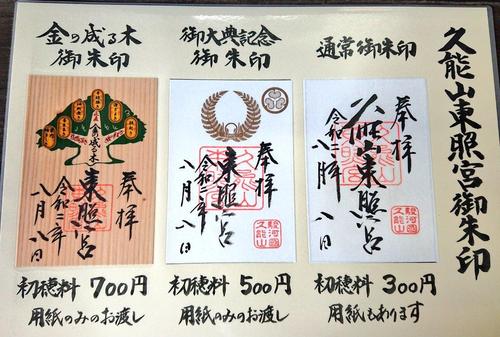 久能山東照宮御朱印
通常御朱印
奉拝
久能山東照宮
令和二年
八月八日
駿河国
久能山
初穂料 300円
用紙もあります
御大典記念
御朱印
奉拝
東照宮
令和二年
八月八日
初穂料 500円
用紙のみのお渡し
金の成る木
御朱印
(金の成る木)
奉拝
東照宮
令和二年
八月八日
初穂料 700円
用紙のみのお渡し